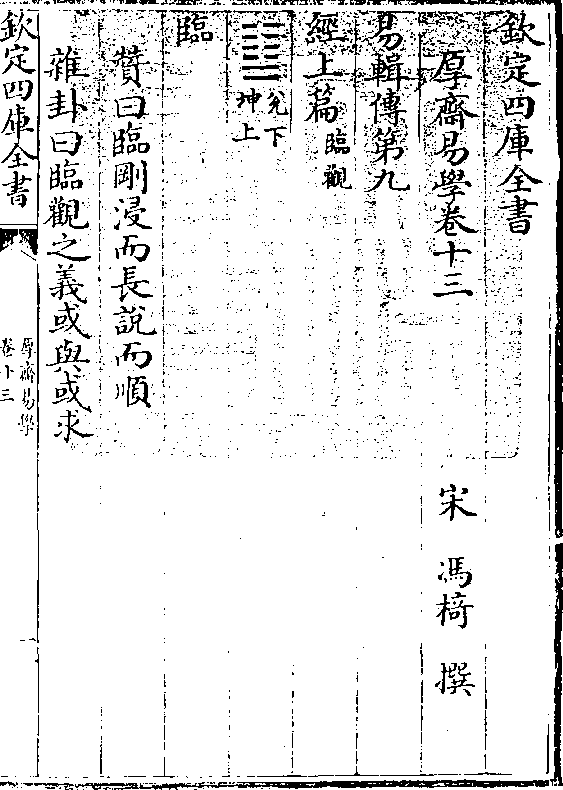 欽定四庫全書
厚齋易學卷十三
宋 馮椅 撰
易輯傳第九
經上篇 臨觀
䷒ 兌下坤上
臨
贊曰臨剛浸而長說而順
雜卦曰臨觀之義或與或求
欽定四庫全書
厚齋易學
卷十三
一